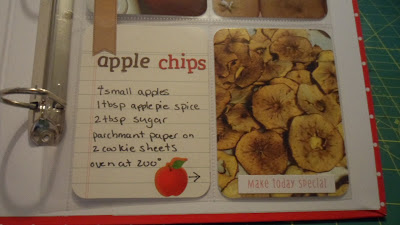 apple chips
4 small apples
1 tbsp apple pie spice
2 tbsp sugar
parchmant paper on
2 cookie sheets
oven at 200°
Make Today Special